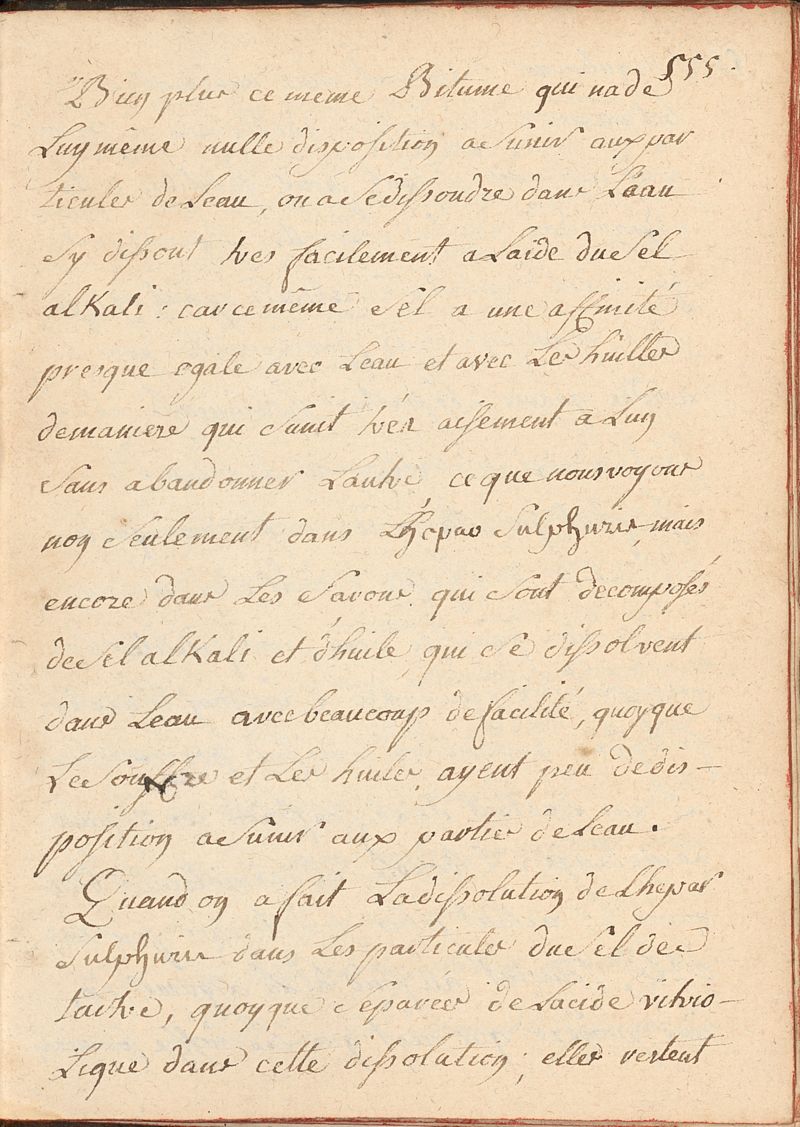 555.
Bien plus ce meme Bitume qui na de
Luy même nulle disposition a Sunir aux par
ticules de Leau, ou a Se dissoudre dans Leau
Sy dissout tres facilement a Laide du Sel
alKali : car ce même Sel a une affinité
presque egale avec Leau et avec Les huilles
de maniere qui Sunit trés aisement a Luy
Sans abandonner Lautre ce que nous voyons
non Seulement dans Lhépar Sulphuris, mais
encore dans Les Savons qui Sont decomposés
de Sel alKali et d'huile, qui Se dissolvent
dans Leau avec beaucoup de facilité, quoyque
Le Souffre et Les huiles ayent peu de dis-
position a Sunir aux parties de Leau.
Quand on a fait La dissolution de Lhepar
Sulphuris dans Les particules du Sel de
tartre, quoyque Separées de Lacide vitrio-
Lique dans cette dissolution ; elles restent